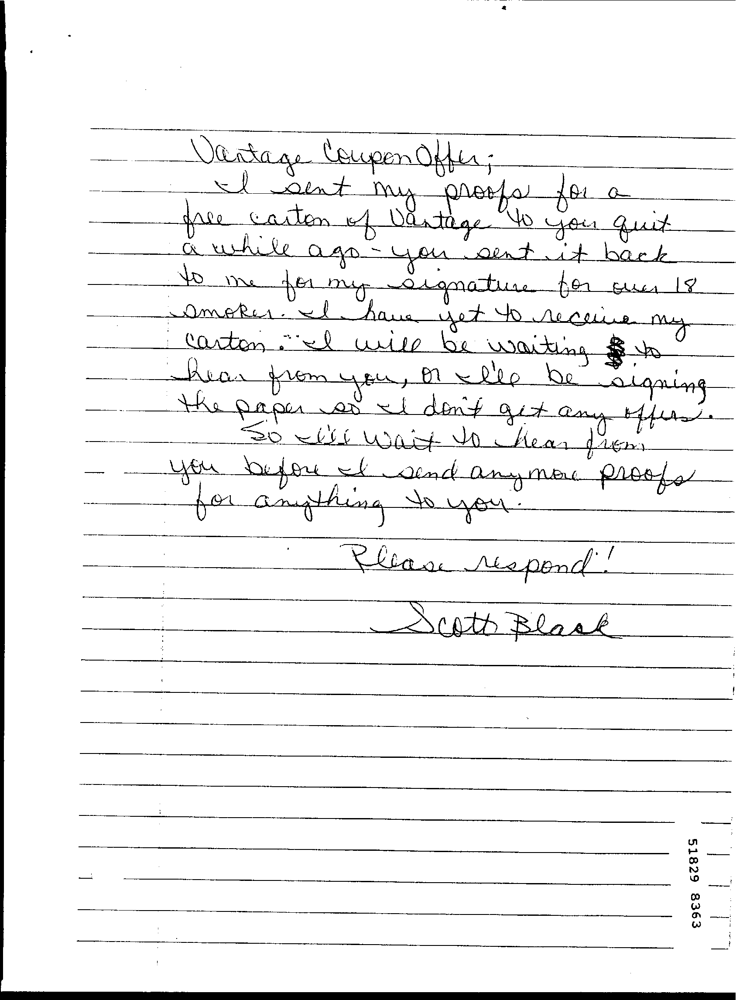 Vantage Coupon Offer;
I sent my proofs for a
free carton of Vantage to you quit
a while ago - you sent it back
to me for my signature for over 18
smoker. I have yet to receive my
carton. I will be waiting to
hear from you, or I'll be signing
the paper so I don't get any offers.
So I'll wait to hear from
you before I send anymore proofs
for anything to you.
Please respond!
Scott Black
51829 8363